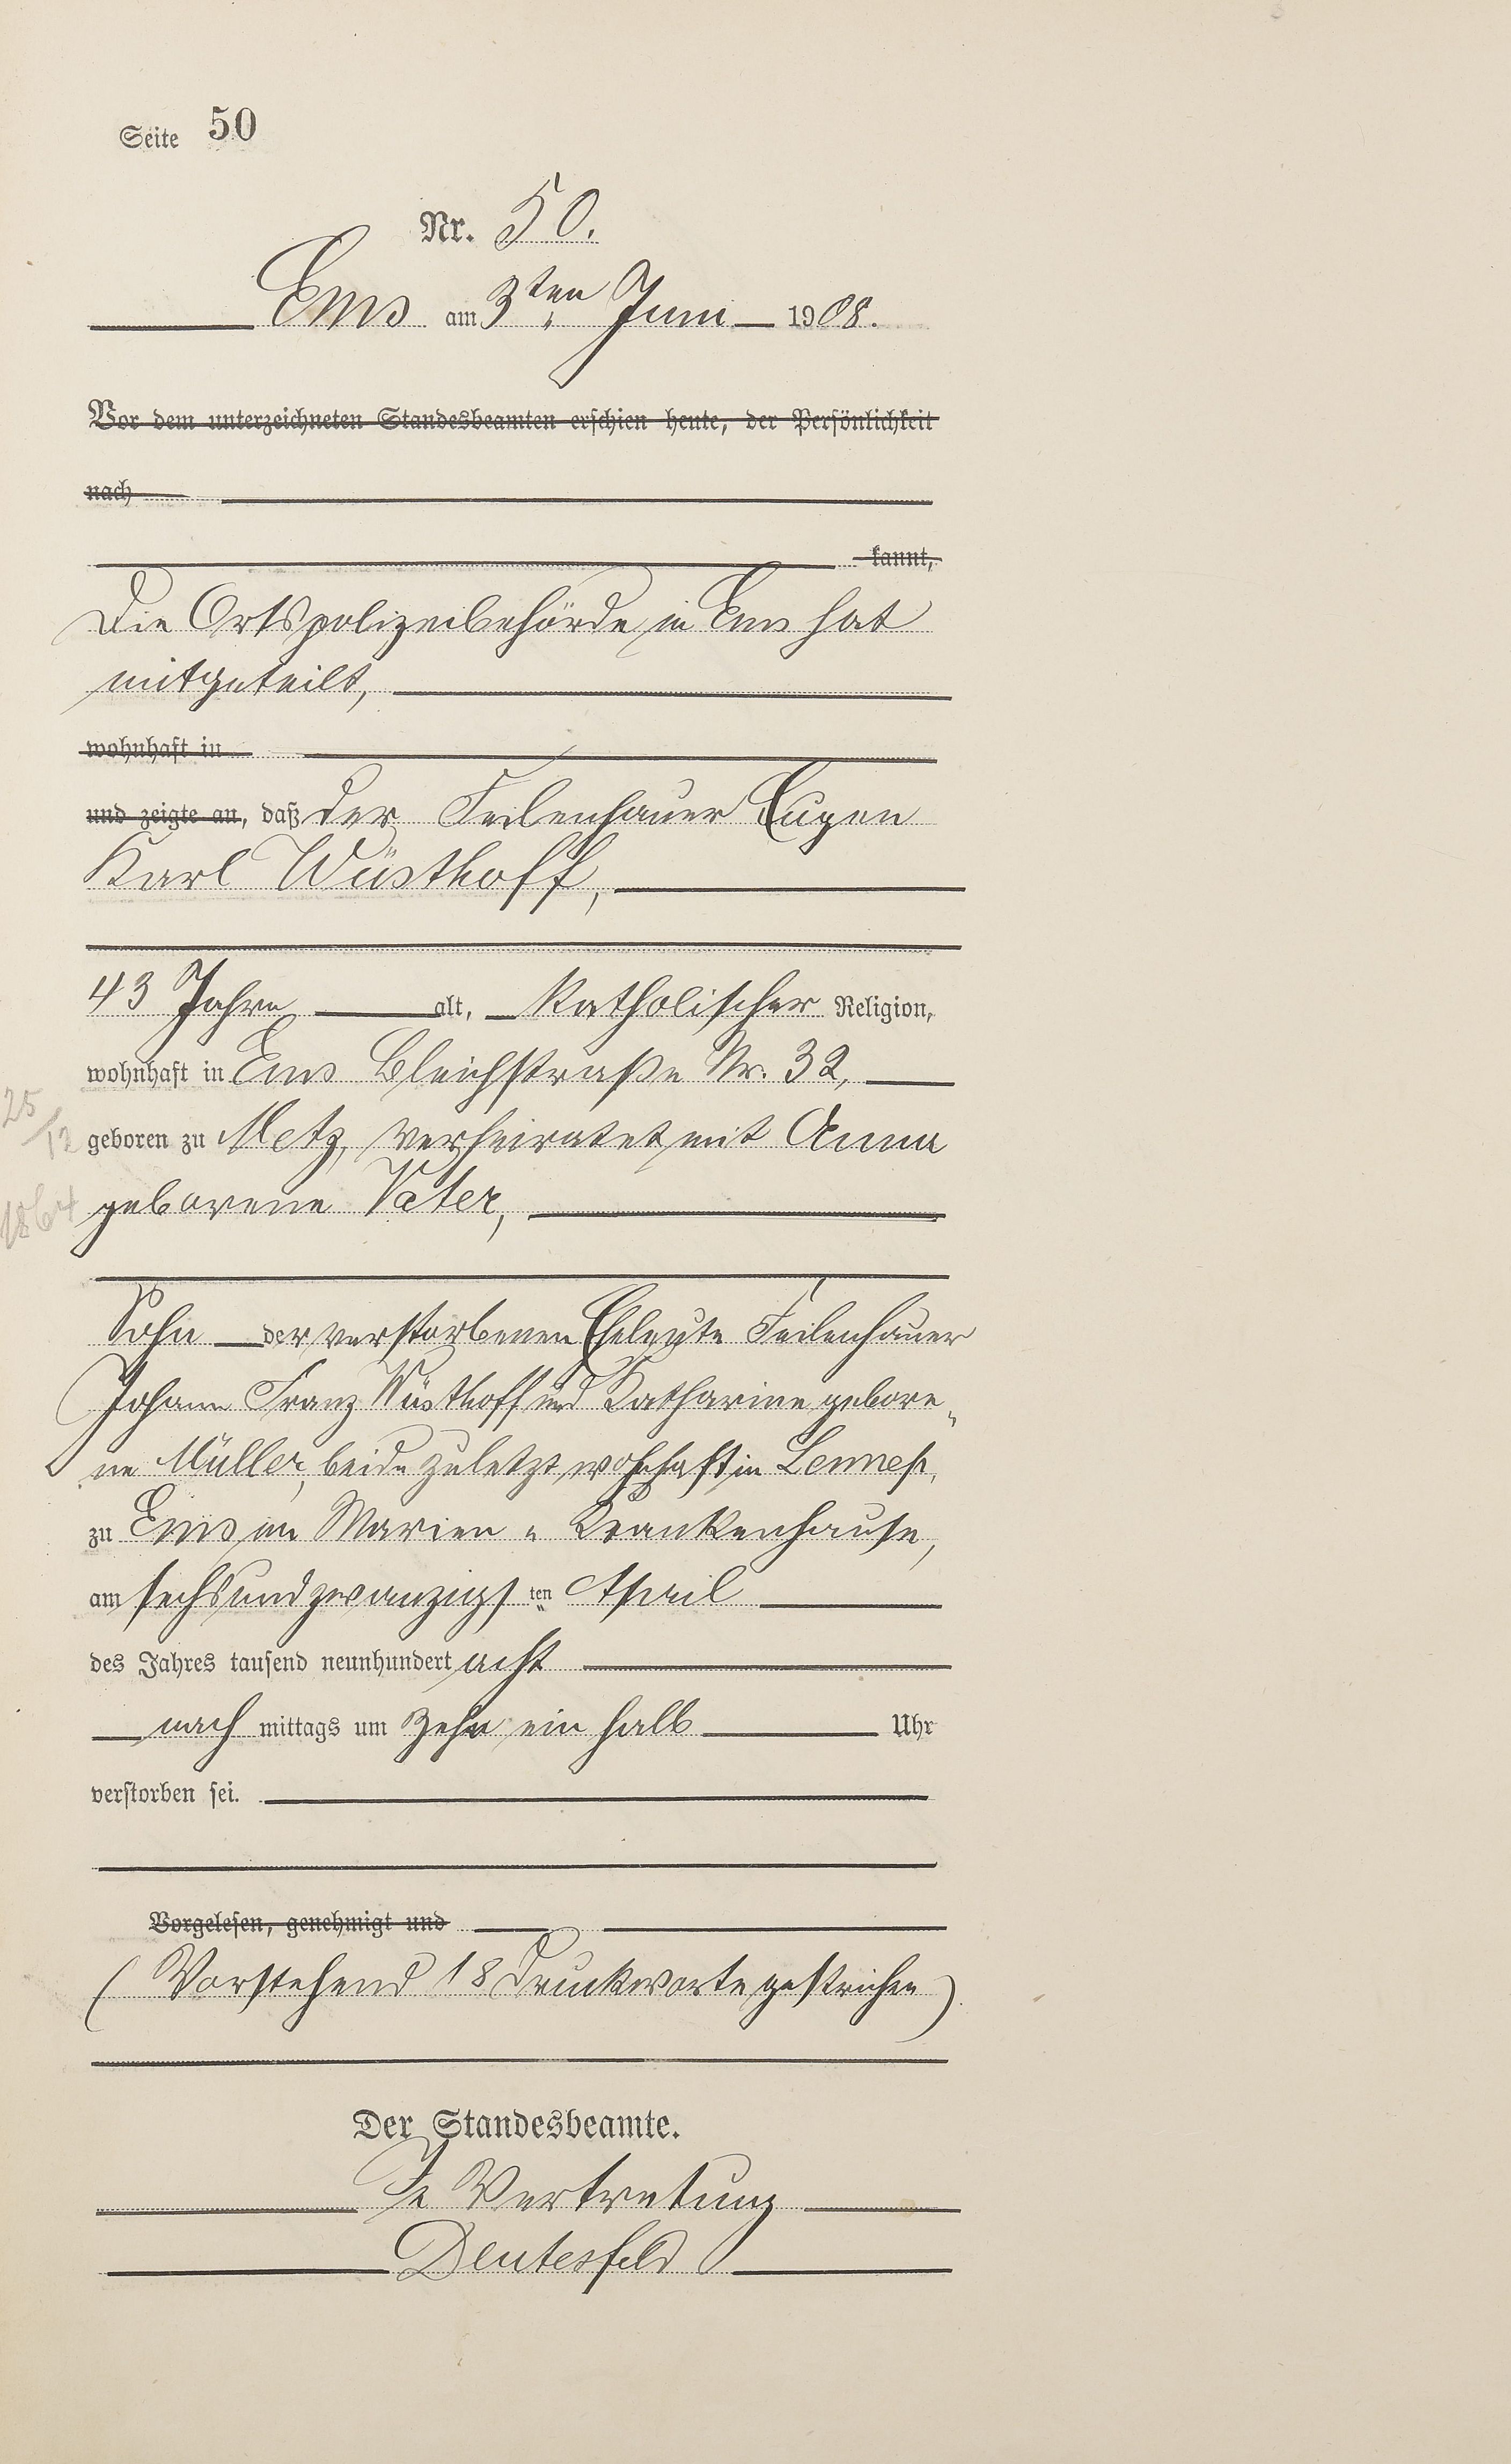 Seite 50
Nr. 50.
Ems am 3ten Juni 1908.
Vor dem unterzeichneten Standesbeamten erschien heute, der Persönlichkeit
nach
kannt,
Die Ortspolizeibehörde in Ems hat
mitgeteilt,
wohnhaft in
und zeigte an, daß der Feilenhauer Eugen
Karl Wüsthoff,
43 Jahre alt, katholischer Religion,
wohnhaft in Ems Bleichstraße Nr. 32,
25/12
geboren zu Metz, verheiratet mit Anna
1864
geborene Vater,
Sohn der verstorbenen Eheleute Feilenhauer
Johann Franz Wüsthoff und Katharine gebore„
ne Müller, beide zuletzt wohnhaft in Lennep,
zu Ems im Marien„Krankenhause,
am sechsundzwanzigsten April
des Jahres tausend neunhundert acht
nachmittags um zehn ein halb Uhr
verstorben sei.
Vorgelesen, genehmigt und
(Vorstehend 18 Druckworte gestrichen)
Der Standesbeamte.
In Vertretung
Deutesfeld